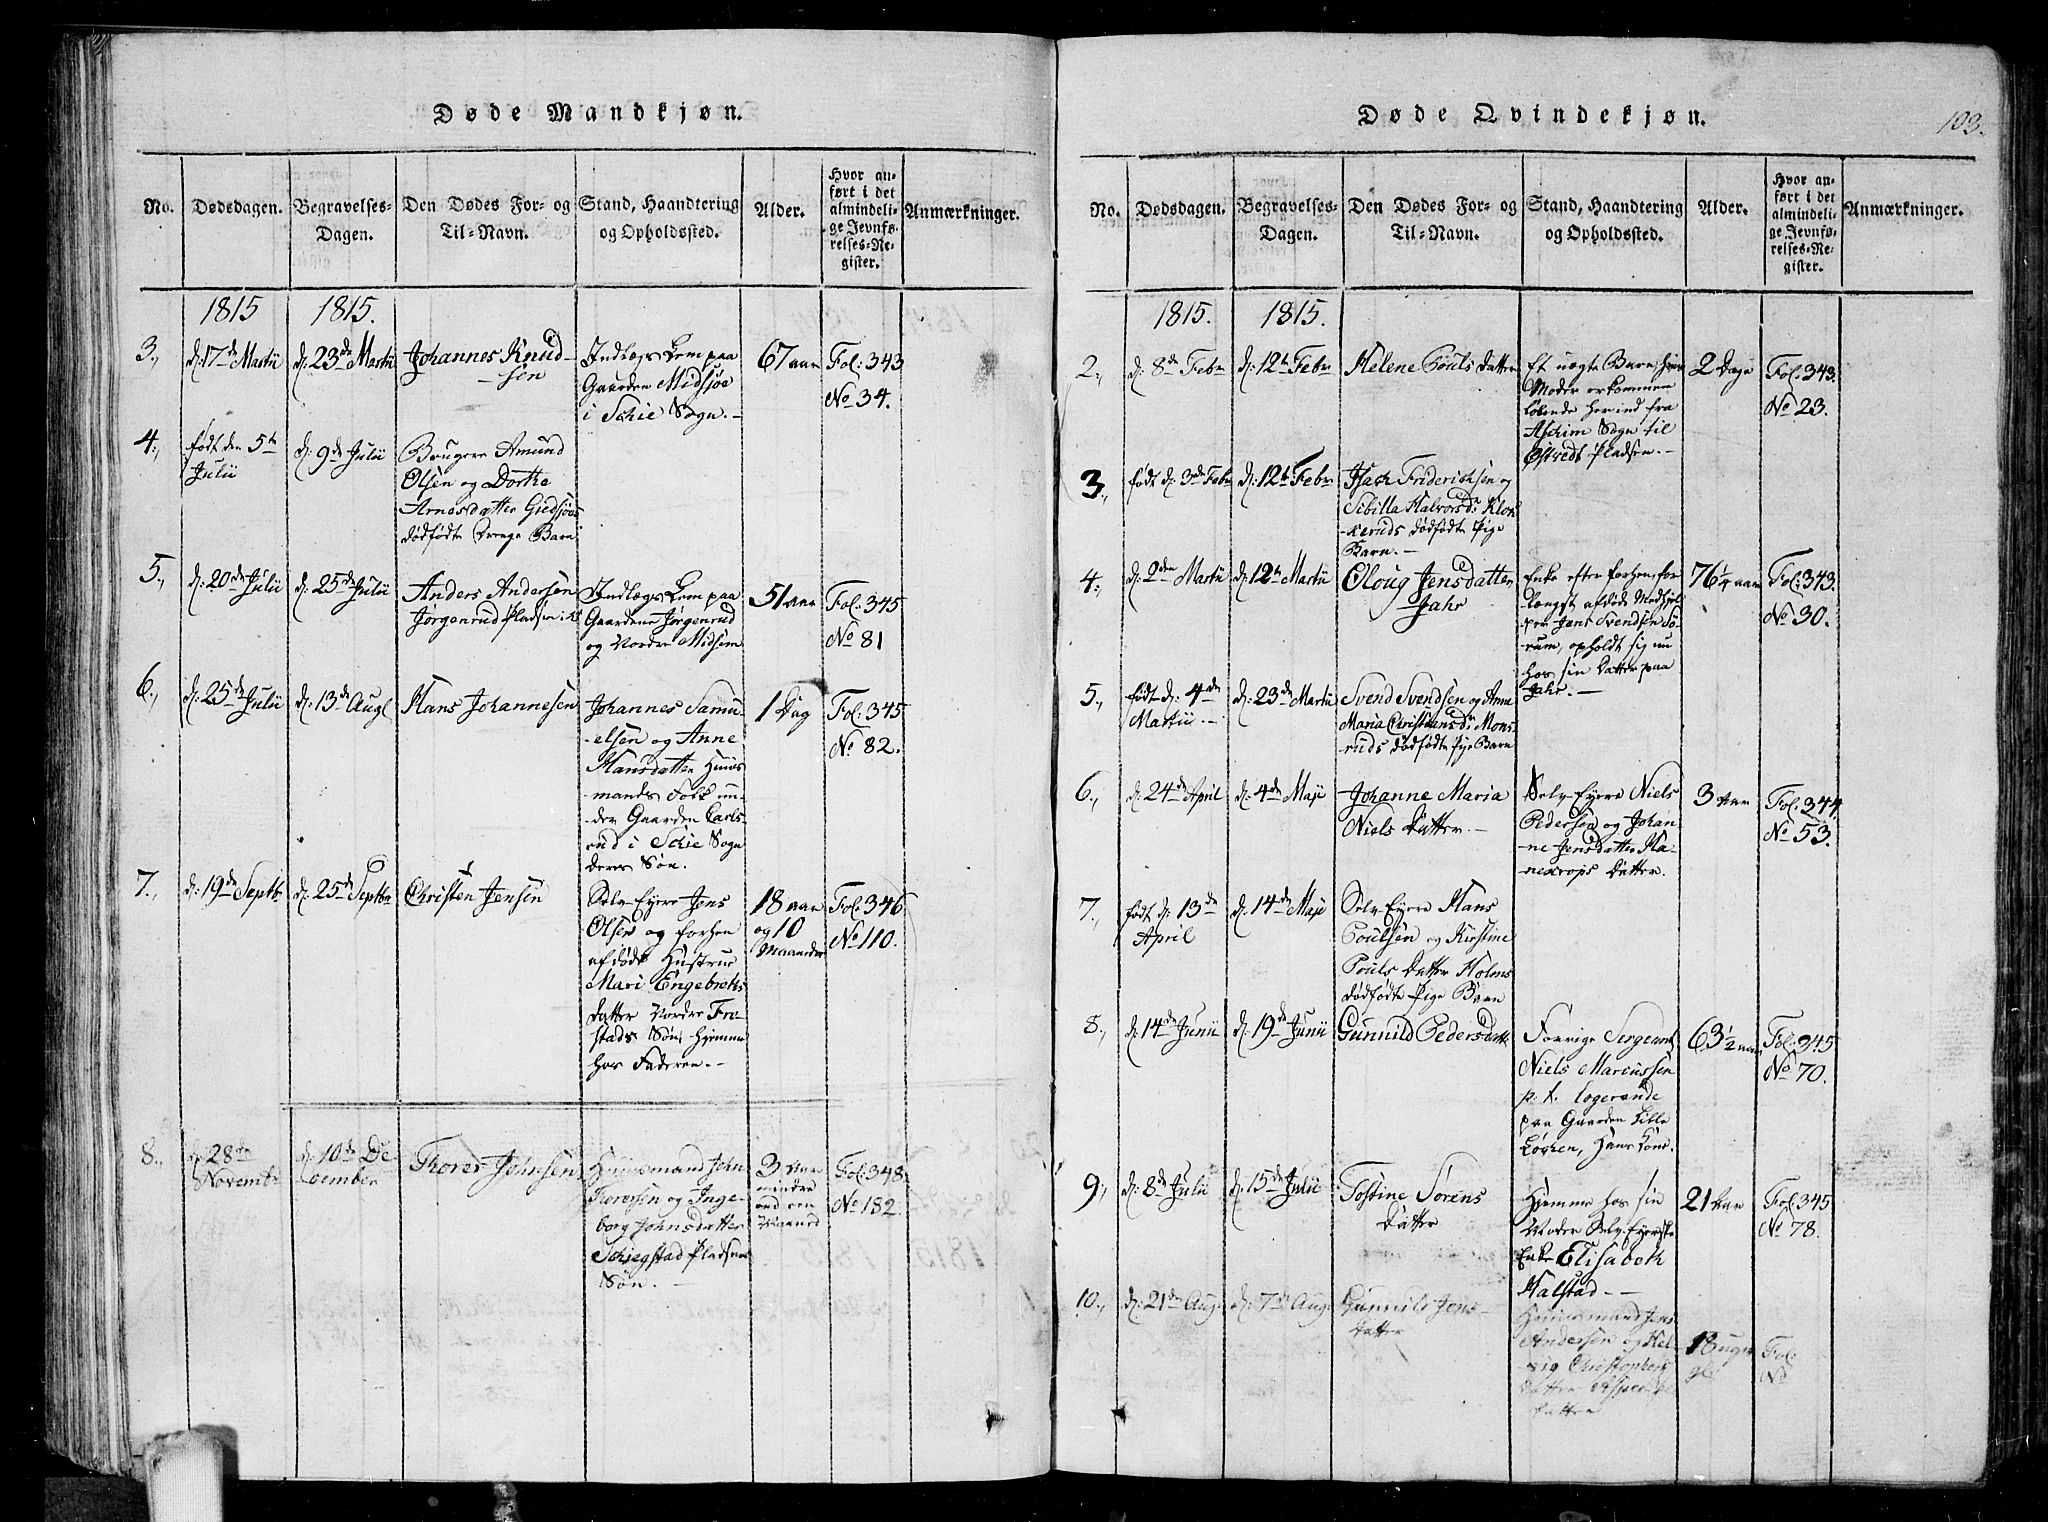 Døde Mandkjøn.
No.
Dødsdagen.
Begravelses-
Dagen.
Den Dødes For- og
Til-Navn.
Stand, Haandtering
og Opholdssted.
Alder.
Hvor an-
ført i det
almindeli-
ge Jevnfø-
relses-Re-
gister.
Anmærkninger.
1815
1815.
3.,
d: 17de Martii
d: 23de Martii
Johannes Knud-
sen
Indlægs Lem paa
Gaarden Midsjøe
i Schie Sogn.-
67 aar
Fol: 343
No 34.
4.,
født den 5te
Julii
d: 9de Julii
Brugere Amund
Olsen og Dorthe
Arnesdatter Giedsjøes
dødfødte Drenge Barn
5.,
d: 20de Julii
d: 25de Julii
Anders Andersen
Jørgenrud Pladsen
Indlægs Lem paa
Gaardene Jørgenrud
og Nordre Midsem
51 aar
Fol: 345
No 81
6.,
d: 25de Julii
d: 13de Augl
Hans Johannesen
Johannes Samu-
elsen og Anne
Hansdatter Huus-
mands Folk un-
der Gaarden Carls-
rud i Schie Sogn
deres Søn.
1 Dag
Fol: 345
No 82.
7.,
d: 19de Septbr
d: 25de Septbr
Christen Jensen
Selv-Eyere Jens
Olsen og forhen
afdøde Hustrue
Mari Engebrets
datter Nordre Fro-
stads Søn, hjemme
hos Faderen.-
18 aar
og 10
Maaneder
Fol: 346
No 110.
8.,
d: 28de
Novembr
d: 10de De-
cember
Thorer Johnsen
Huusmand John
Thorersen og Inge-
borg Johnsdatter
Schiegstad Pladsens
Søn.-
3 Aar
mindre
end een
Maaned
Fol: 348
No 182.
Døde Qvindekjøn.
103.
No.
Dødsdagen.
Begravelses-
Dagen.
Den Dødes For- og
Til-Navn.
Stand, Haandtering
og Opholdssted.
Alder.
Hvor an-
ført i det
almindeli-
ge Jevnfø-
relses-Re-
gister.
Anmærkninger.
1815.
1815.
2.,
d: 8de Febr
d: 12te Febr
Helene Pouls datter
Et uægte Barn hvis
Moder er kommen
løbende her ind fra
Aschim Sogn til
Østredt Pladsen.-
2 Dage
Fol: 343.
No 23.
3.,
født d: 3de Febr
d: 12te Febr
Isach Friderichsen og
Sibilla Halvorsdr Klok-
keruds dødfødte Pige
Barn.-
4.,
d: 2den Martii
d: 12te Martii
Oloug Jensdatter
Jahr
Enke efter forhen for
længst afdøde Medhjel-
per Jens Svendsen Sø-
rum, opholdt sig nu
hos sin Datter paa
Jahr.-
76 1/4 aar
Fol: 343
No 30.
5.,
født d: 4de
Martii.-
d: 23de Martii
Svend Svendsen og Anne
Maria Christiansdr Mons-
ruds dødfødte Pige Barn
6.,
d: 24de April
d: 4de Maji
Johanne Maria
Niels datter.-
Selv-Eyere Niels
Pedersen og Johan-
ne Jensdatter Ha-
nekrops Datter.
3 Aar
Fol: 344.
No 53.
7.,
født d: 13de
April
d: 14de Maji
Selv-Eyere Hans
Poulsen og Kirstine
Pouls datter Holms
dødfødte Pige Barn
8.,
d: 14de Junii
d: 19de Junii
Gunnild Pedersdatter
Forrige Sergeant
Niels Marcussen
p. t. logerende
paa Gaarden Lille
Løchen, Hans Kone.
63 1/2 aar
Fol: 345
No 70.
9.,
d: 8de Julii
d: 15de Julii
Tostine Sørens
datter
Hjemme hos sin
Moder Selv-Eyerske
Enke Elisabeth
Halstad.-
21 Aar
Fol: 345
No 78.
10.,
d: 21de Aug.
d: 7de Aug.
Gunnild Jens-
datter
Huusmand Jens
Andersen og Hel-
vig Christophers
datter
datter
18 uger
gl.
Fol:
No